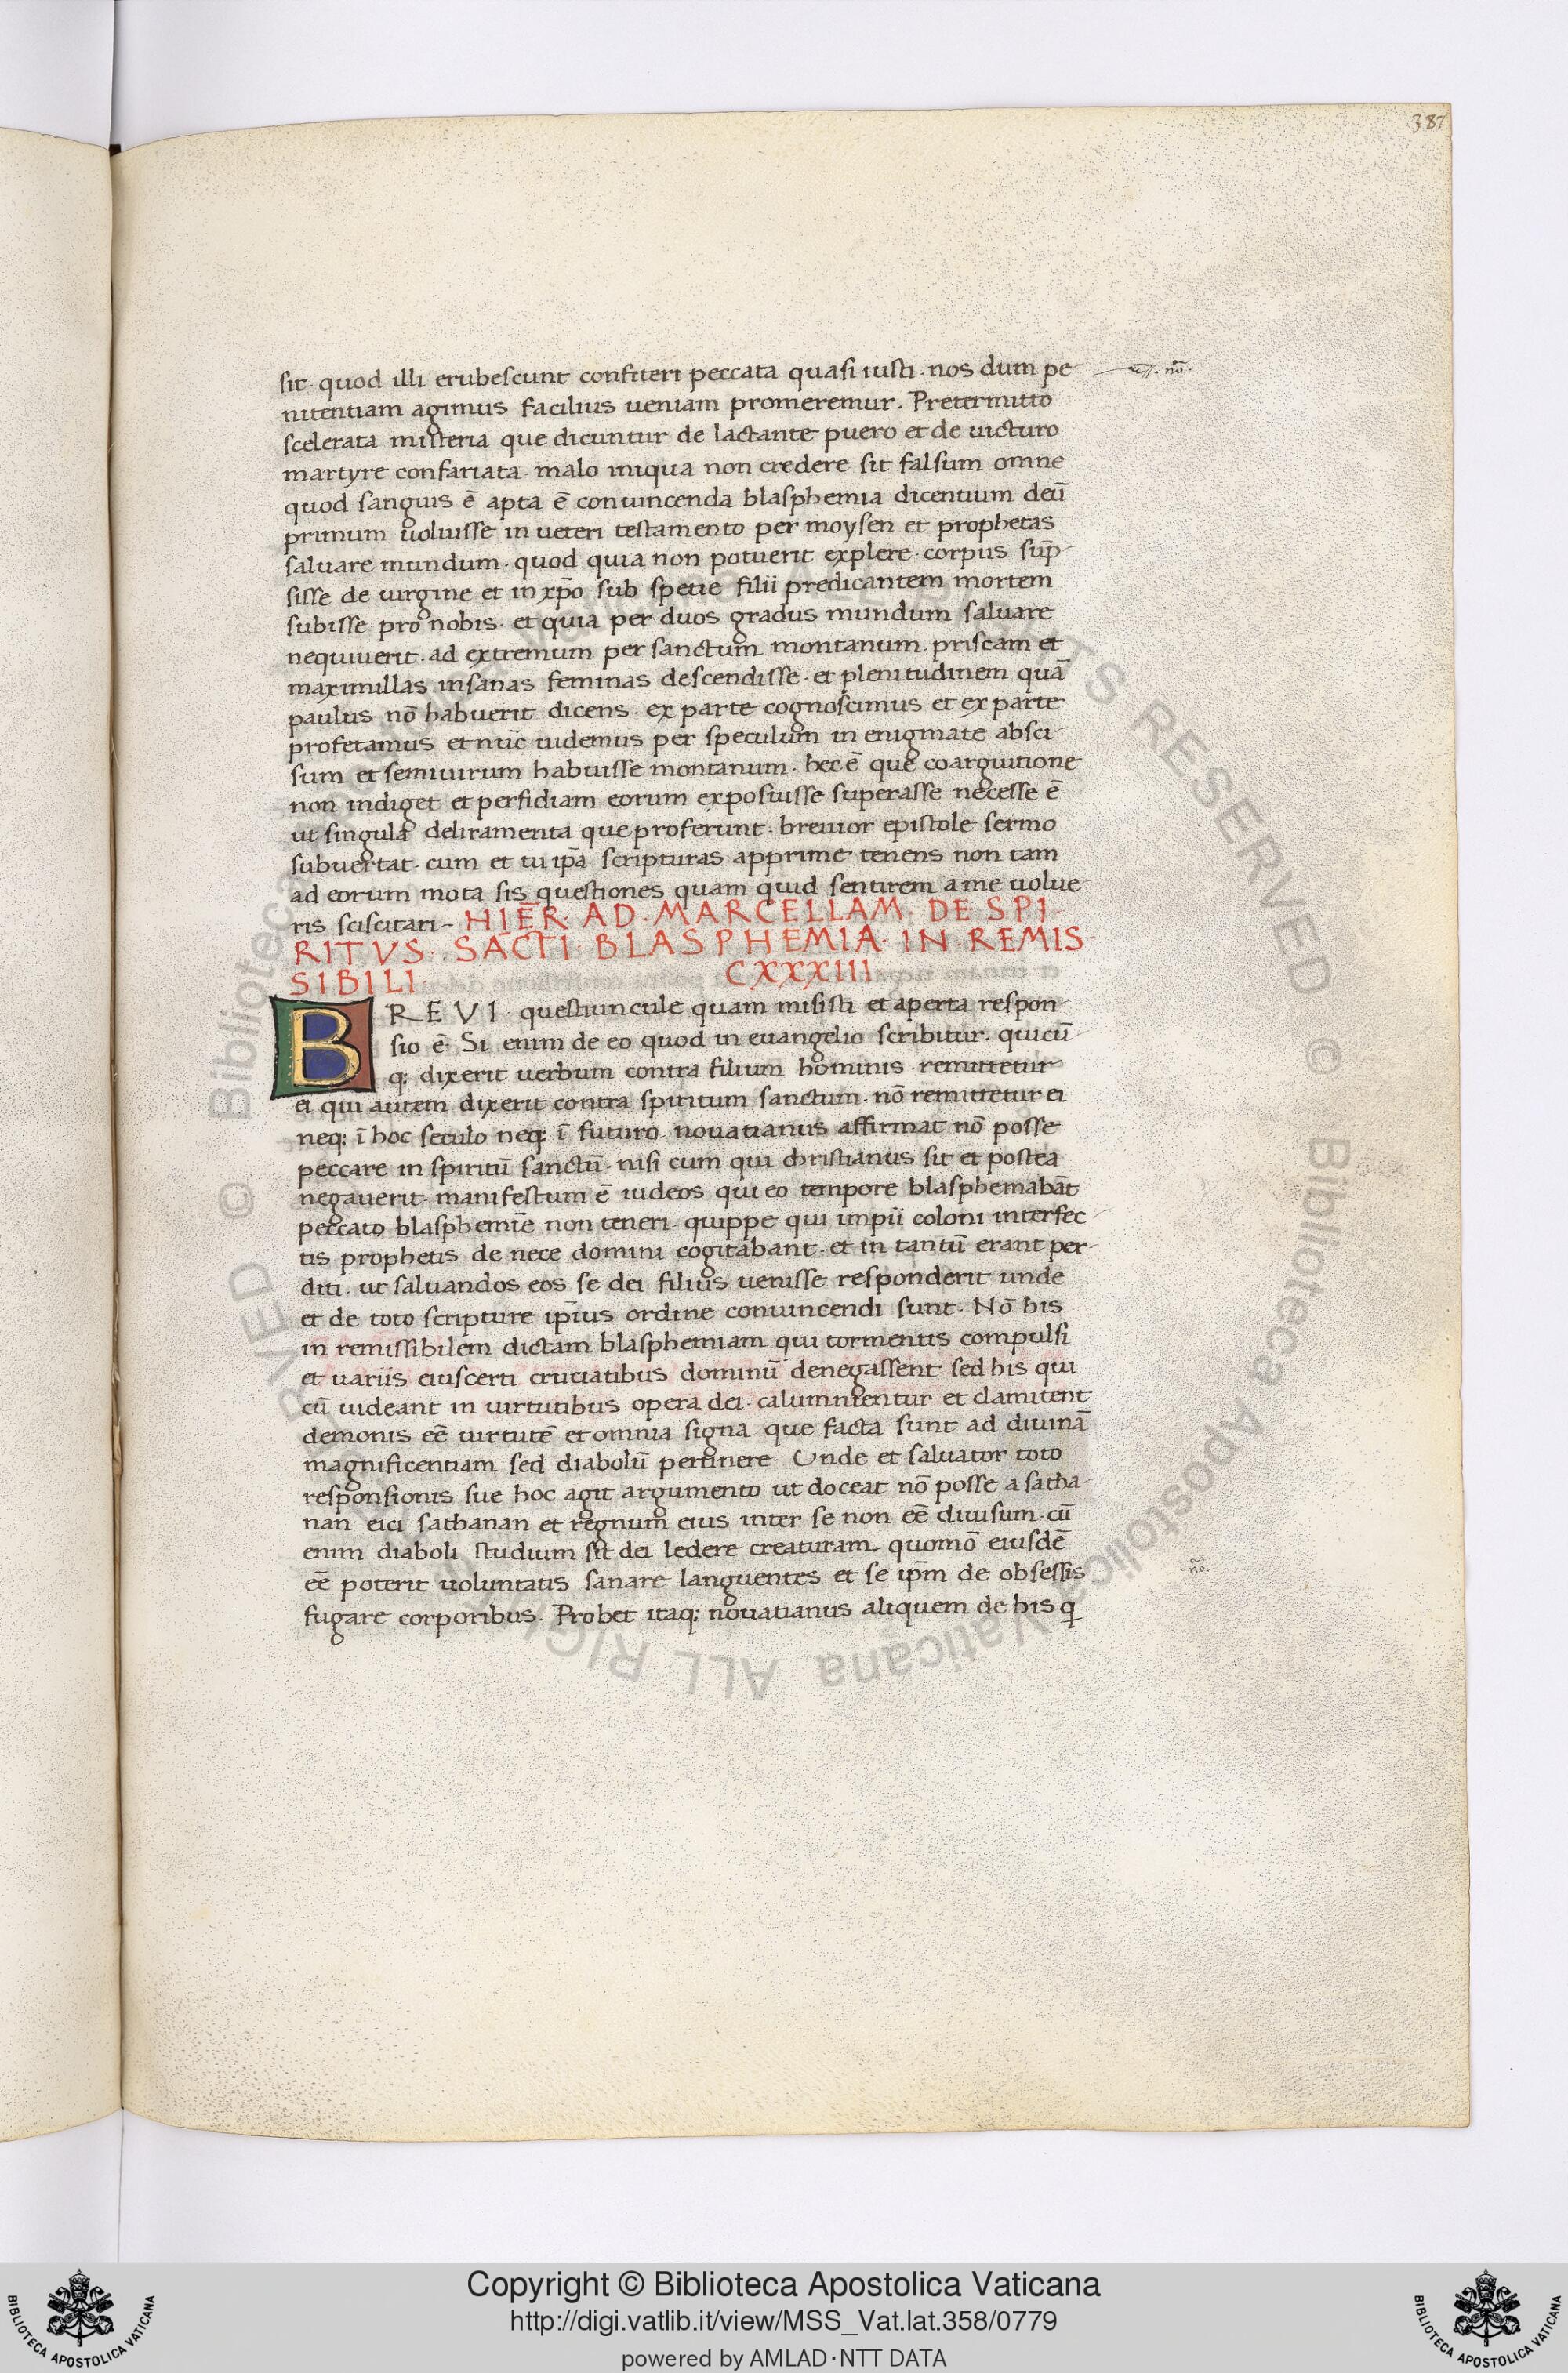 387
sit· quod illi erubescunt confiteri peccata quasi iusti· nos dum pe
nitentiam agimus facilius ueniam promeremur. Pretermitto
scelerata misteria que dicuntur de lactante puero et de uicturo
martyre confariata· malo iniqua non credere sit falsum omne
quod sanguis ē apta ē conuincenda blasphemia dicentium deū
primum uoluisse in ueteri testamento per moysen et prophetas
saluare mundum· quod quia non potuerit explere· corpus sūp
sisse de uirgine et in xp̄o sub spetie filii predicantem mortem
subisse pro nobis· et quia per duos gradus mundum saluare
nequiuerit· ad extremum per sanctum montanum· priscam et
maximillas insanas feminas descendisse· et plenitudinem quā
paulus nō habuerit dicens· ex parte cognoscimus et ex parte
profetamus et nūc uidemus per speculum in enigmate absci
sum et semiuirum habuisse montanum· hec ē que coarguitione
non indiget et perfidiam eorum exposuisse superasse necesse ē
ut singula deliramenta que proferunt· breuior epistole sermo
subuertat· cum et tu ip̄a scripturas apprime tenens non tam
ad eorum mota sis questiones quam quid sentirem a me uolue
ris sciscitari- HIER̄· AD· MARCELLAM· DE SPI
RITVS· SACTI· BLASPHEMIA· IN· REMIS
SIBILI CXXXIII
BREVI questiuncule quam misisti et aperta respon
sio ē· Si enim de eo quod in euangelio scribitur· quicū
q; dixerit uerbum contra filium hominis· remittetur
ei qui autem dixerit contra spiritum sanctum· nō remittetur ei
neq; ī hoc seculo neq; ī futuro nouatianus affirmat nō posse
peccare in spiritū sanctū· nisi cum qui christianus sit et postea
negauerit· manifestum ē iudeos qui eo tempore blasphemabāt
peccato blasphemie non teneri· quippe qui impii coloni interfec
tis prophetis de nece domini cogitabant· et in tantū erant per-
diti· ut saluandos eos se dei filius uenisse responderit unde
et de toto scripture ip̄ius ordine conuincendi sunt· Nō his
in remissibilem dictam blasphemiam qui tormentis compulsi
et uariis euiscerti cruciatibus dominū denegassent sed his qui
cū uideant in uirtutibus opera dei· calumnientur et clamitent
demonis eē uirtutē et omnia signa que facta sunt ad diuinā
magnificentiam sed diabolū pertinere· Unde et saluator toto
responsionis sue hoc agit argumento ut doceat nō posse a satha-
nan eici sathanan et regnum eius inter se non eē diuisum· cū
enim diaboli studium sit dei ledere creaturam· quomō eiusdē
eē poterit uoluntatis sanare languentes et se ip̄m de obsessis
fugare corporibus. Probet itaq; nouatianus aliquem de his q
nō·
nō·
© Biblioteca Apostolica Vaticana ALL RIGHTS RESERVED
Copyright © Biblioteca Apostolica Vaticana
http://digi.vatlib.it/view/MSS_Vat.lat.358/0779
powered by AMLAD·NTT DATA
BIBLIOTECA APOSTOLICA VATICANA
BIBLIOTECA APOSTOLICA VATICANA